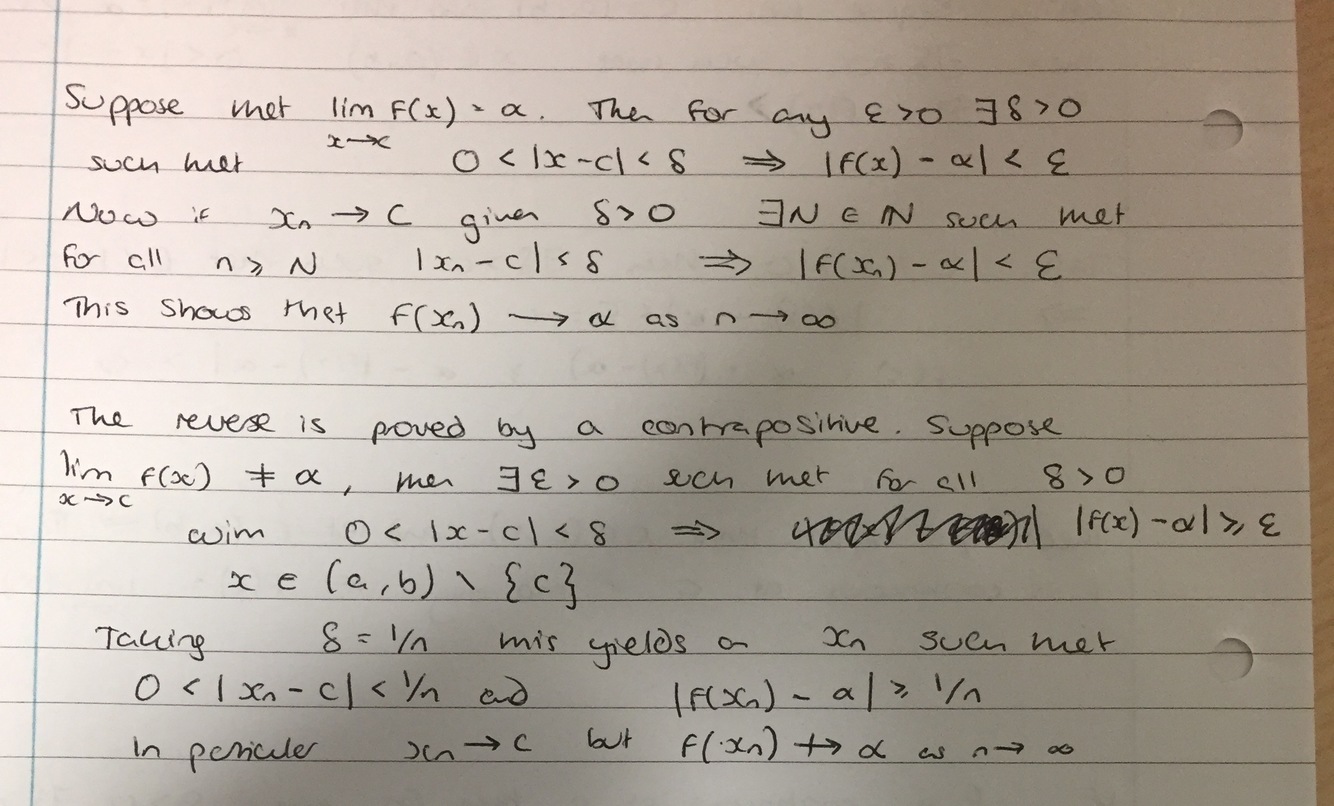 Suppose that lim f(x) = α. Then for any ε > 0 ∃δ > 0
x→c
such that 0 < |x - c| < δ ⟹ |f(x) - α| < ε
Now if xₙ → c given δ > 0 ∃N ∈ ℕ such that
for all n ≥ N |xₙ - c| < δ ⟹ |f(xₙ) - α| < ε
This shows that f(xₙ) → α as n → ∞
The reverse is proved by a contrapositive. Suppose
lim f(x) ≠ α, then ∃ε > 0 such that for all δ > 0
x→c
with 0 < |x - c| < δ ⟹ |f(x) - α| ≥ ε
x ∈ (a, b) \ {c}
Taking δ = 1/n this yields an xₙ such that
0 < |xₙ - c| < 1/n and |f(xₙ) - α| ≥ 1/n
In particular xₙ → c but f(xₙ) ↛ α as n → ∞